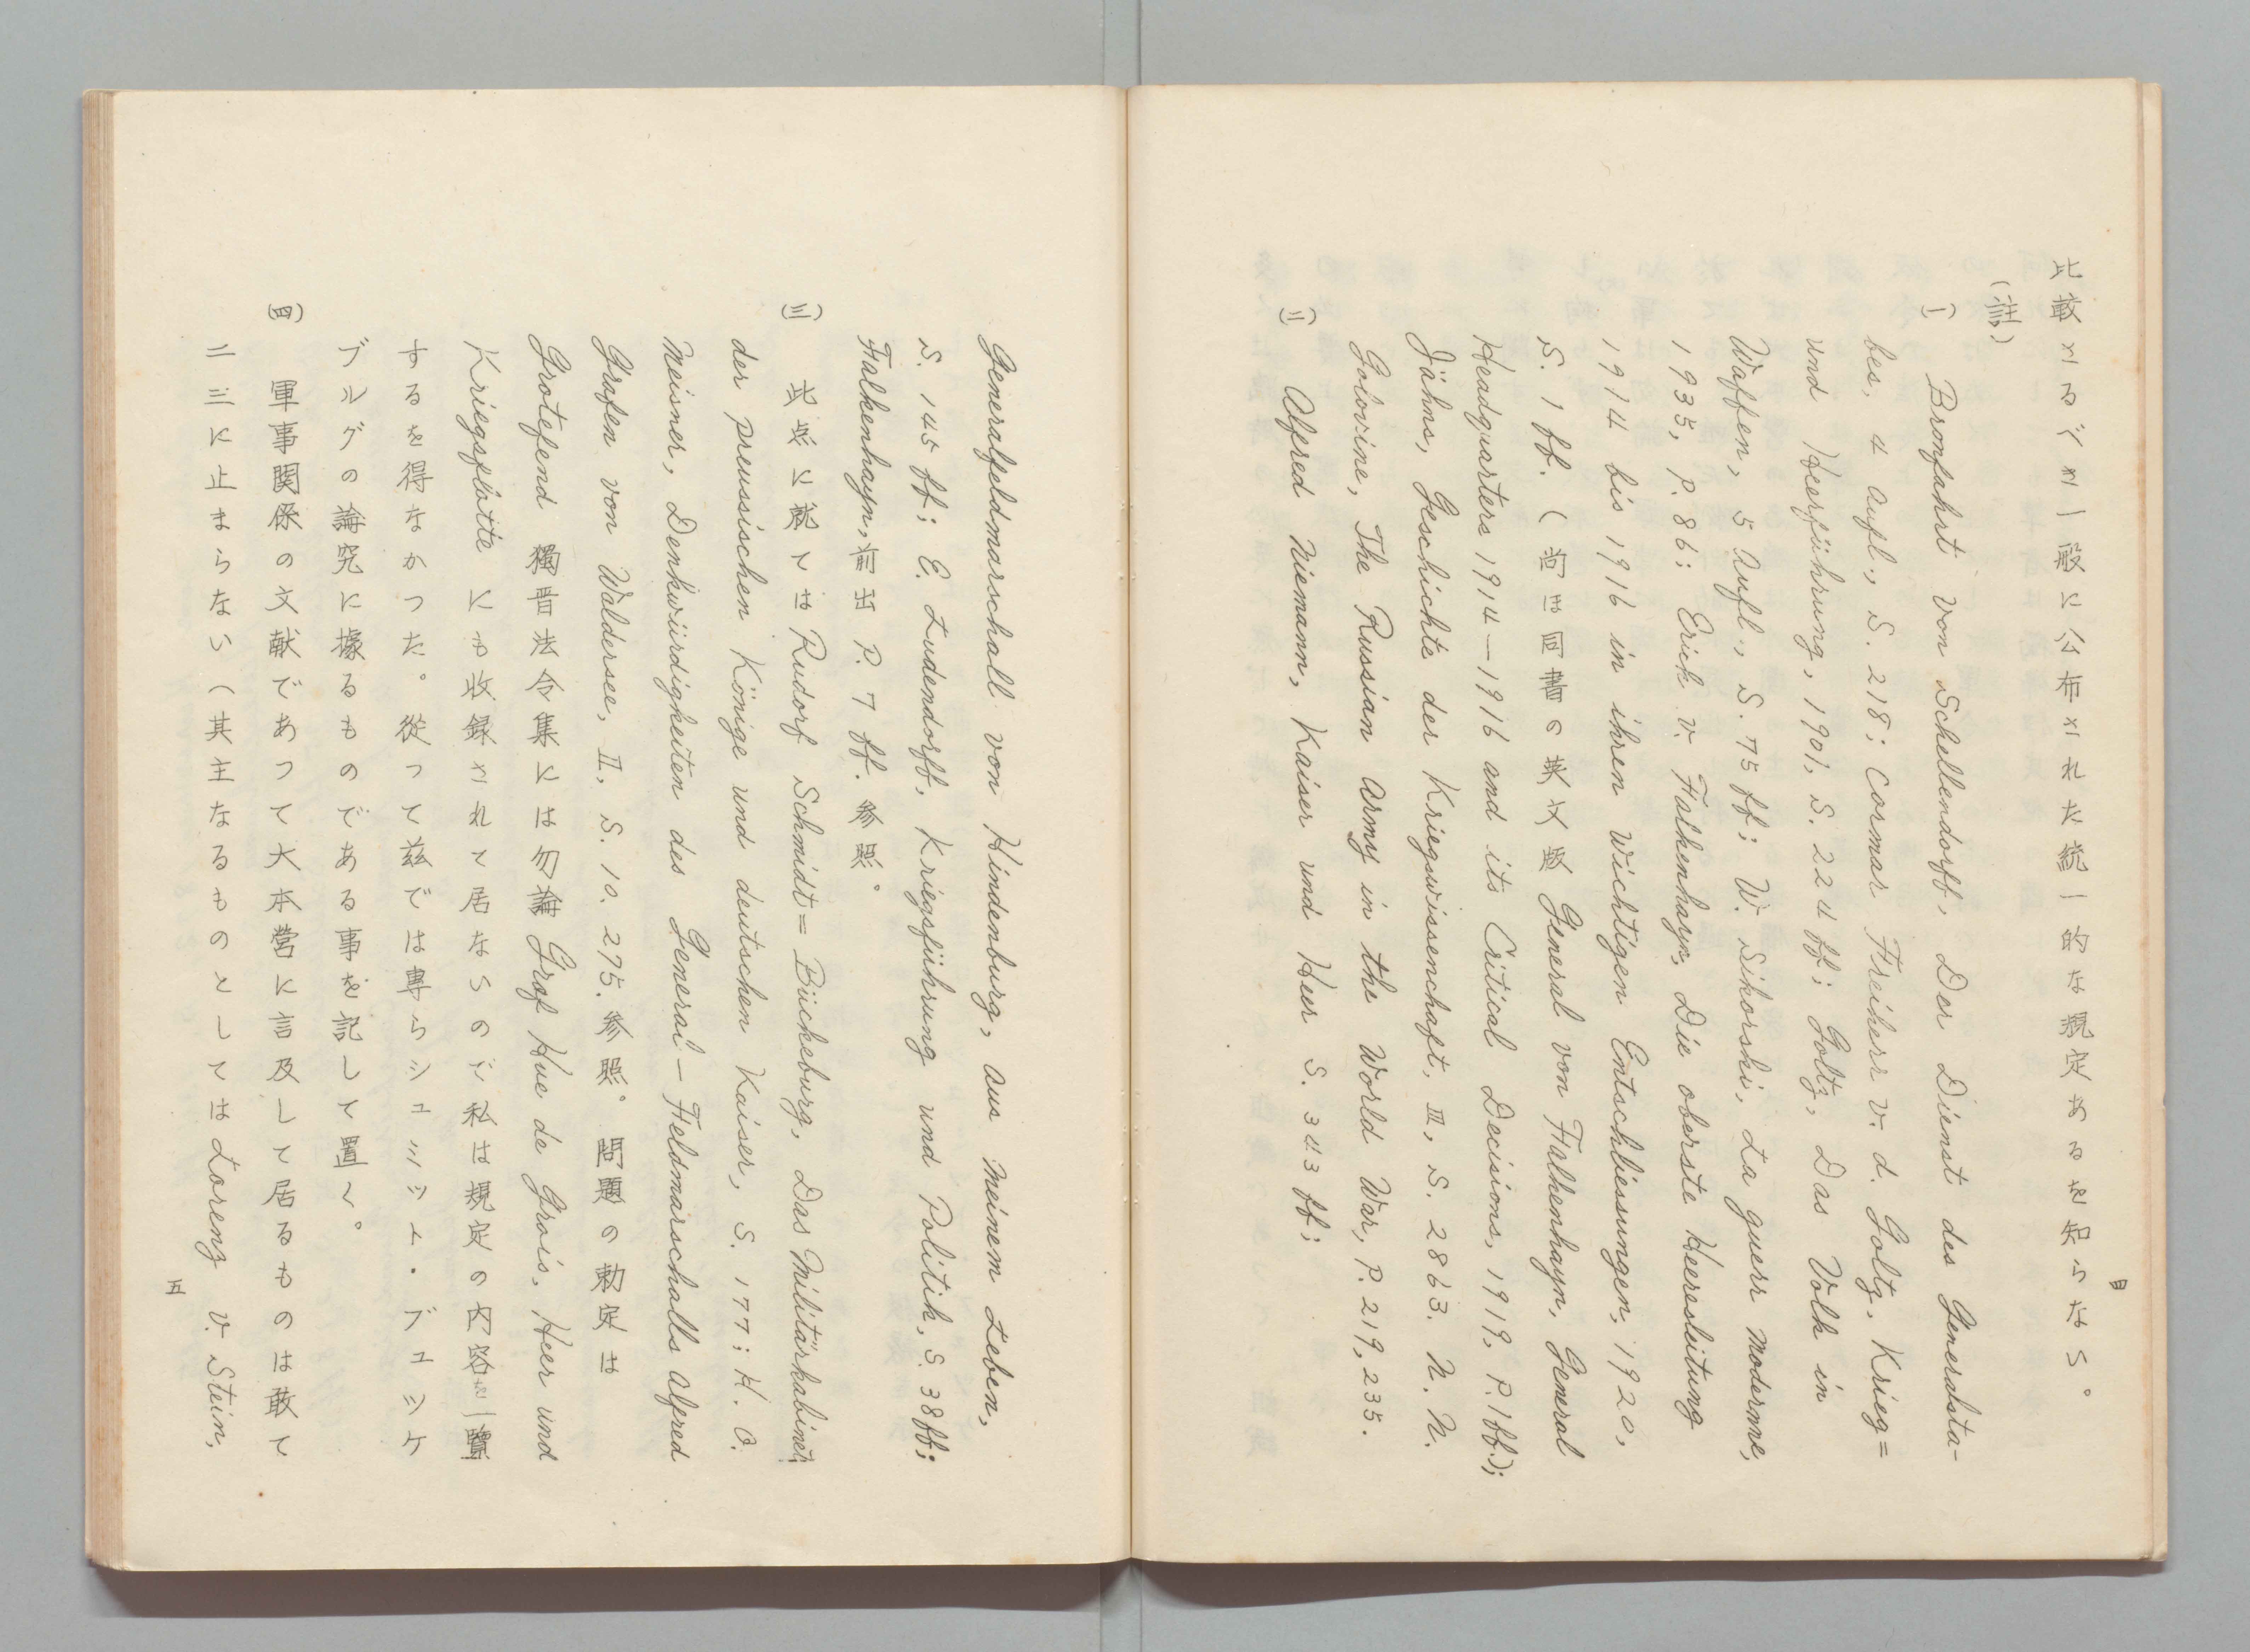 四
比較するべき一般に公布された統一的な規定あるを知らない。
(註)
(一) Bronfahrt von Schellendorff, Der Dienst des Generalsta-
bes, 4 Aufl., S. 218; Cormar Freiherr v. d. Goltz, Krieg=
und Heerführung, 1901, S. 224 ff; Goltz, Das Volk in
Waffen, 5 Aufl., S. 75 ff; W. Sikorski, La guerr moderne,
1935, P. 86; Erich v. Falkenhayn, Die oberste Heeresleitung
1914 bis 1916 in ihren Wichtigen Entschliessungen, 1920,
S. 1 ff. (尚ほ同書の英文版 General von Falkenhayn, General
Headquarters 1914—1916 and its Critical Decisions, 1919, P. 1 ff.);
Jähns, Geschichte der Kriegswissenchaft, III, S. 2863. N. N.
Golovine, The Russian Army in the World War, P. 219, 235.
(二) Alfred Niemann, Kaiser und Heer S. 343 ff;
Generalfeldmarschall von Hindenburg, Aus Meinem Leben,
S. 145 ff; E. Ludendorff, Kriegsführung und Politik, S. 38 ff;
Falkenhayn, 前出 P. 7 ff. 参照。
(三) 此点に就ては Rudorf Schmidt=Bückeburg, Das Militärkabinet
der preussischen Könige und deutschen Kaiser, S. 177; H. O.
Meisner, Denkwürdigkeiten des General-Feldmarschalls Alfred
Grafen von Waldersee, II, S. 10. 275. 参照。 問題の勅定は
Grotefend 獨晋法令集には勿論 Graf Hue de Grais, Heer und
Kriegsflotte にも收録されて居ないので私は規定の内容を一覽
するを得なかつた。從つて茲では專らシュミット・ブュッケ
ブルグの論究に據るものである事を記して置く。
(四) 軍事関係の文献であつて大本営に言及して居るものは敢て
二三に止まらない(其主なるものとしては Lorenz v. Stein,
五